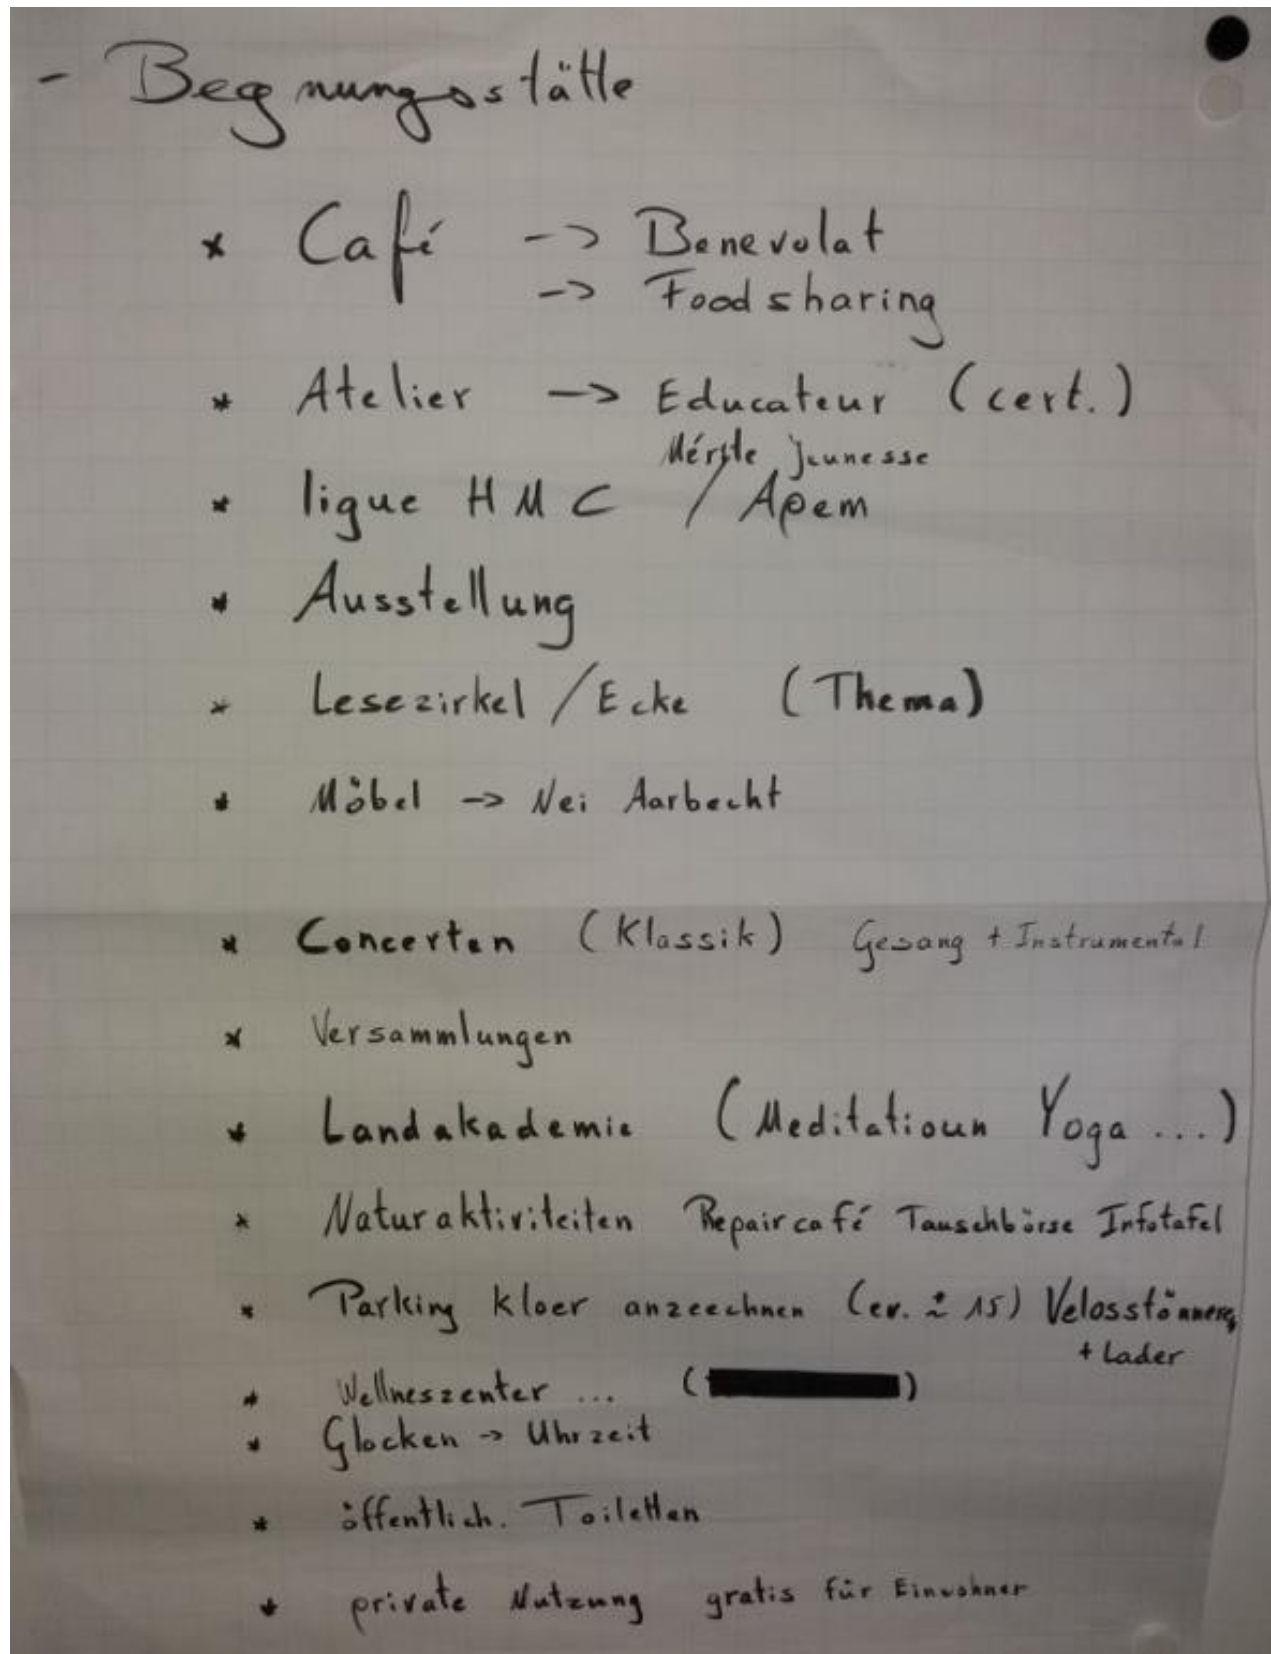 - Begnungsstätte
* Café -> Benevolat
-> Foodsharing
* Atelier -> Educateur (cert.)
jeunesse
* ligue HMC / Apem
* Ausstellung
* Lesezirkel / Ecke (Thema)
* Möbel -> Nei Aarbecht
* Concerten (Klassik) Gesang + Instrumental
* Versammlungen
* Landakademie (Meditatioun Yoga ...)
* Naturaktiviteiten Repaircafé Tauschbörse Infotafel
* Parking kloer anzeechnen (ev. ± 15) Velosstänneren
+ Lader
* Wellneszenter ... ( )
* Glocken -> Uhrzeit
* öffentlich. Toiletten
* private Nutzung gratis für Einwohner